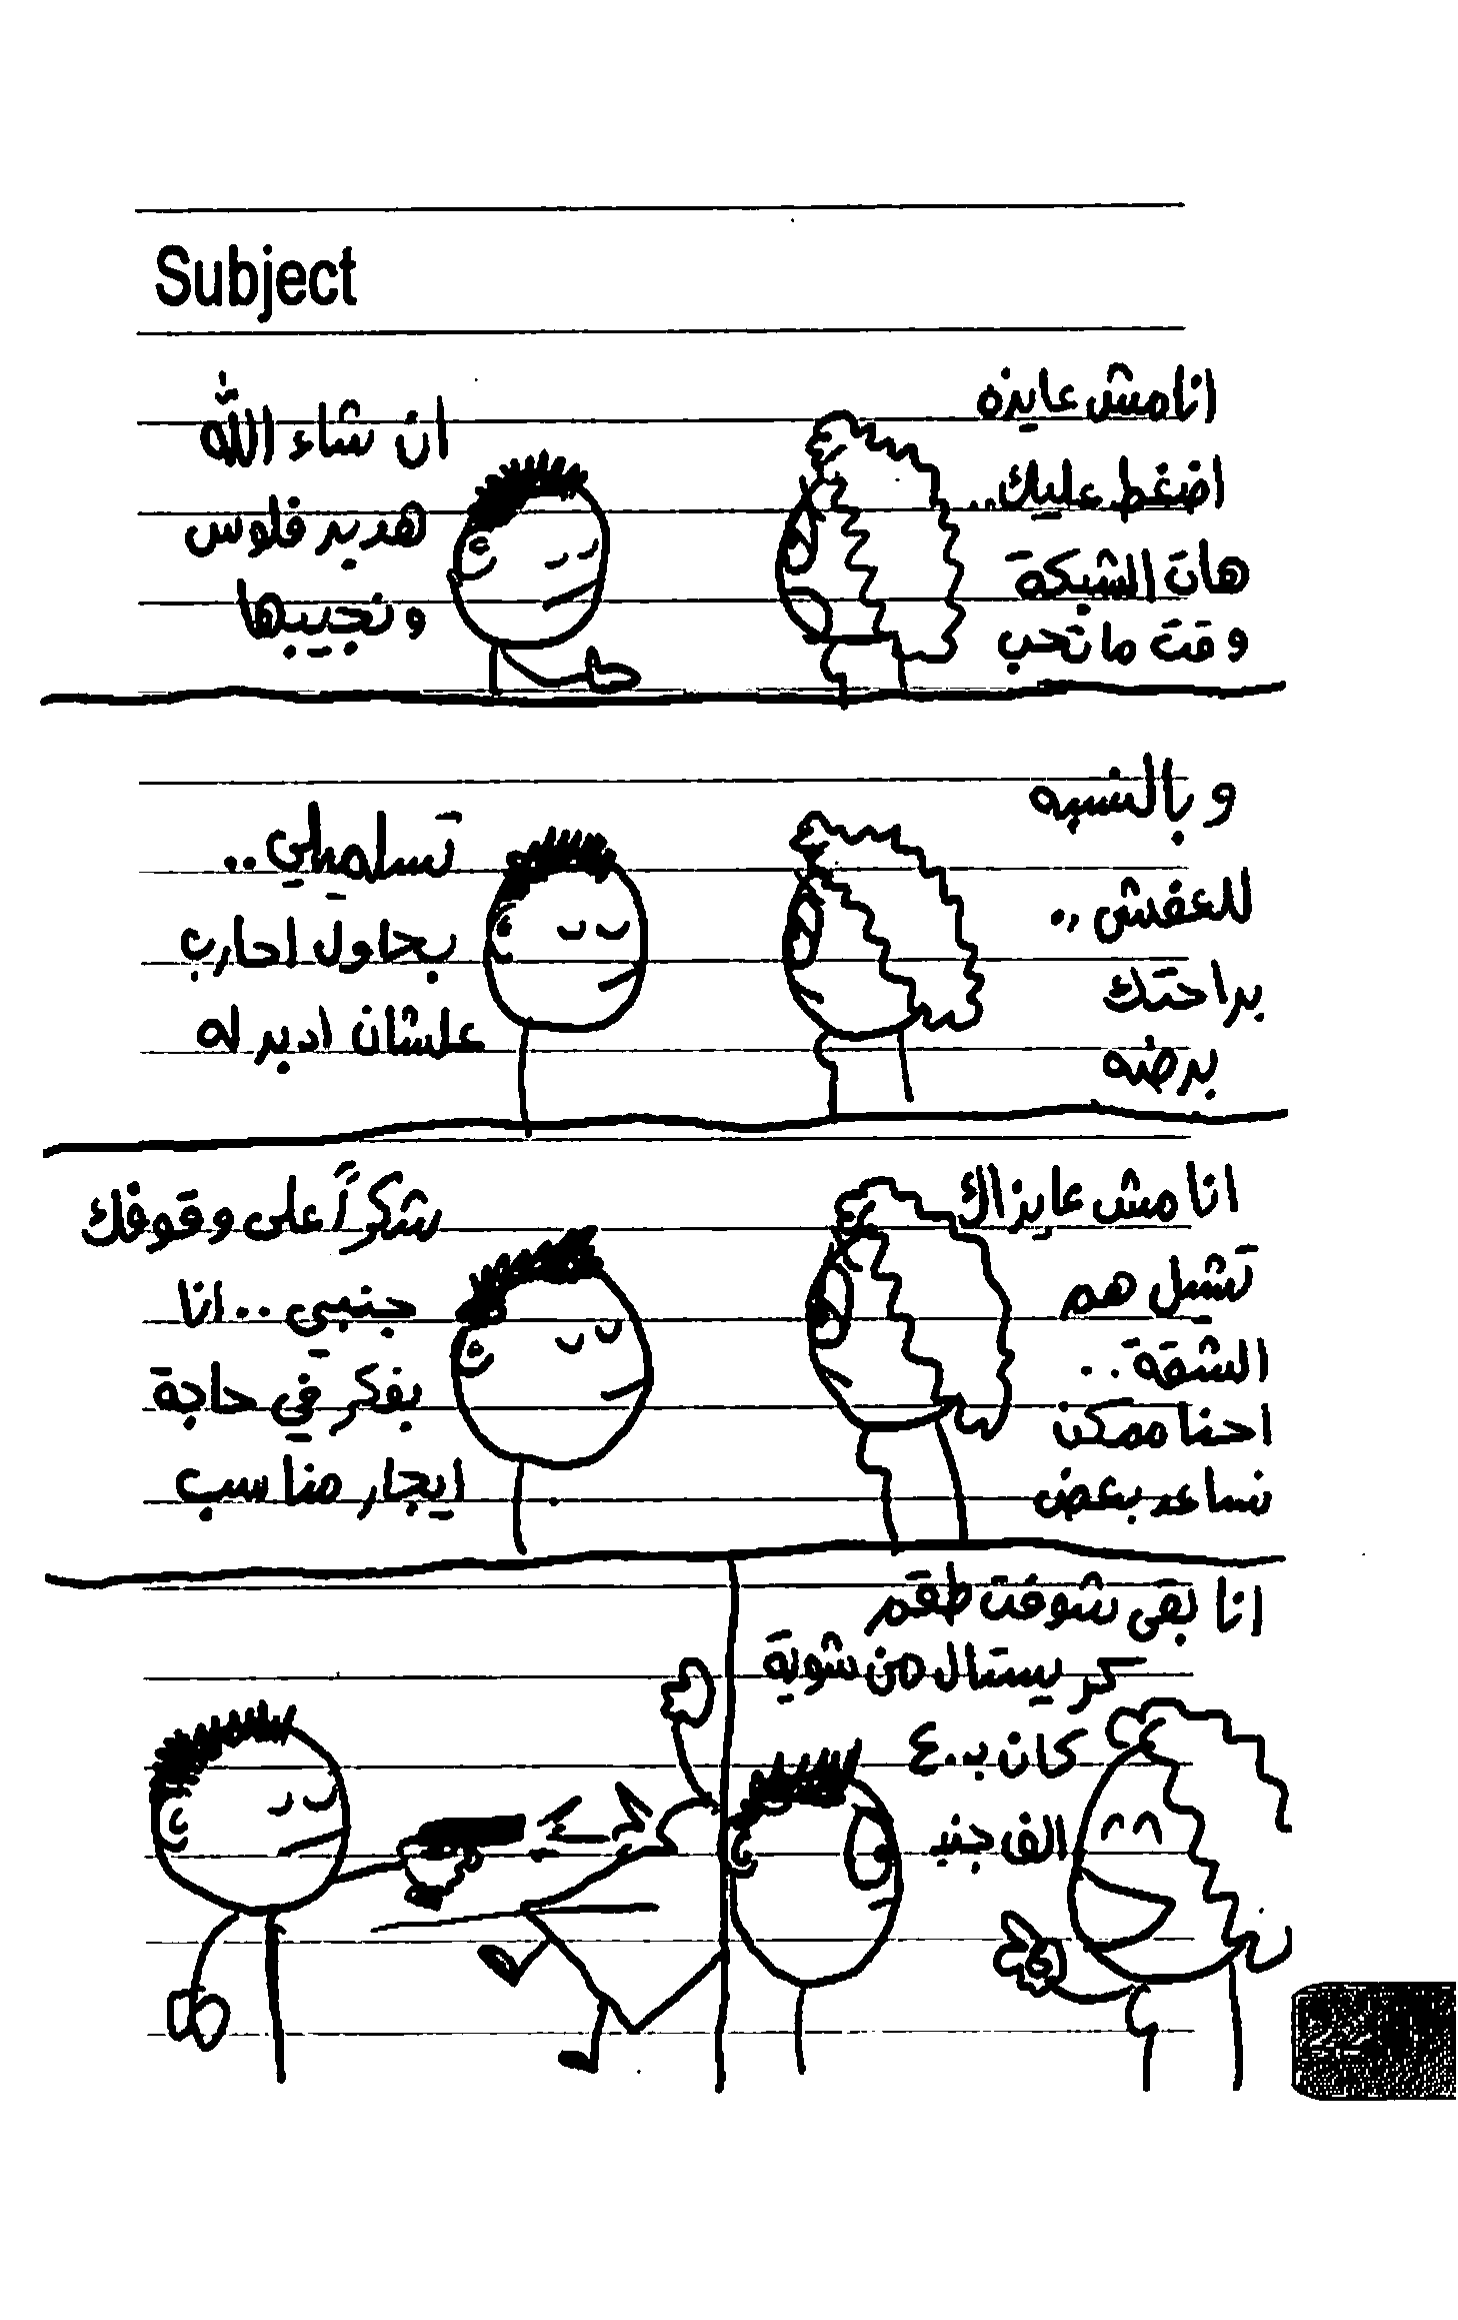 Subject
انا مش عايزه
اضغط عليك..
هات الشبكة
وقت ما تحب
ان شاء الله
هدبر فلوس
ونجيبها
وبالنسبه
للعفش..
براحتك
برضه
تسلميلي..
بحاول احارب
علشان ادبر له
انا مش عايزاك
تشيل هم
الشقة..
احنا ممكن
نساعد بعض
شكراً على وقوفك
جنبي.. انا
بفكر في حاجة
ايجار مناسب
انا بقى شوفت طقم
كريستال من شوية
كان بـ ٤٠٠
الف جنيه